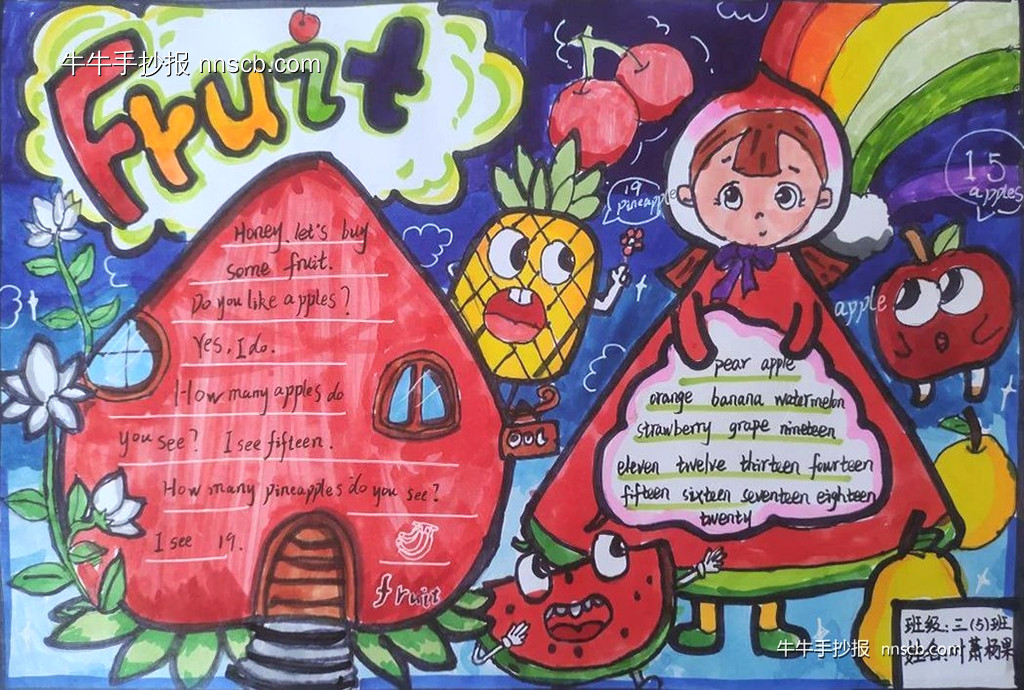 牛牛手抄报 nnscb.com
Fruit
Honey, let's buy
some fruit.
Do you like apples?
Yes, I do.
How many apples do
you see? I see fifteen.
How many pineapples do you see?
I see 19.
fruit
19
pineapple
15
apples
apple
pear apple
orange banana watermelon
strawberry grape nineteen
eleven twelve thirteen fourteen
fifteen sixteen seventeen eighteen
twenty
班级:三(5)班
姓名:叶萧杨果
牛牛手抄报 nnscb.com